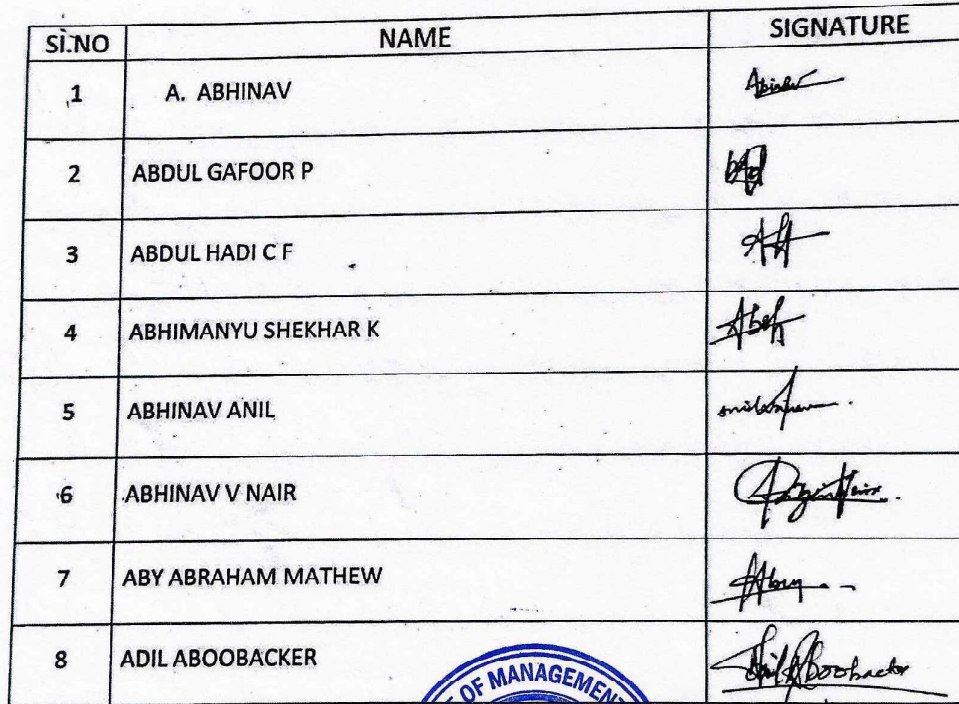 SI.NO NAME SIGNATURE
1 A. ABHINAV Abinav
2 ABDUL GAFOOR P
3 ABDUL HADI C F AH
4 ABHIMANYU SHEKHAR K
5 ABHINAV ANIL
6 ABHINAV V NAIR
7 ABY ABRAHAM MATHEW Aby
8 ADIL ABOOBACKER Adil Aboobacker
OF MANAGEMEN